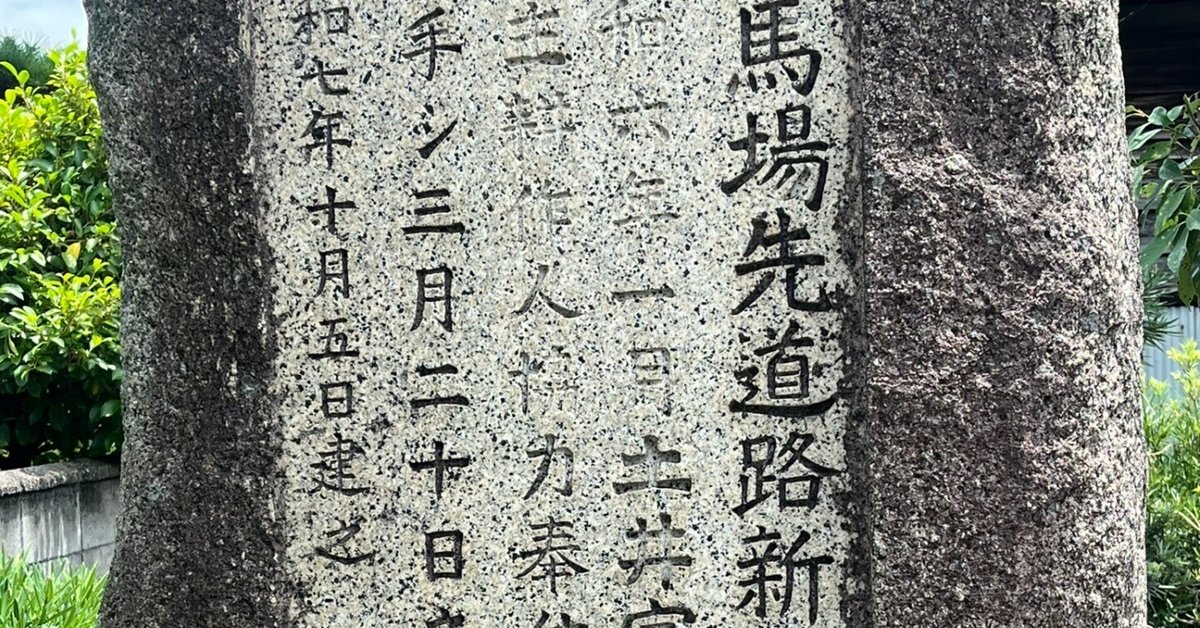 馬場先道路新
和六年一月土井宮
主耕作人協力奉仕
手シ三月二十日
昭和七年十月五日建之